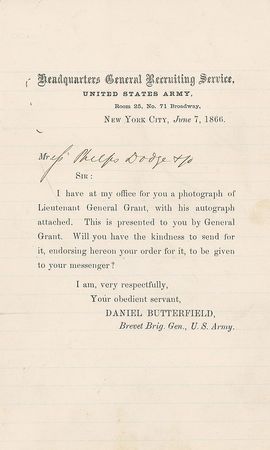 Headquarters General Recruiting Service,
UNITED STATES ARMY,
Room 25, No. 71 Broadway,
NEW YORK CITY, June 7, 1866.
Messrs Phelps Dodge & Co
SIR:
I have at my office for you a photograph of
Lieutenant General Grant, with his autograph
attached. This is presented to you by General
Grant. Will you have the kindness to send for
it, endorsing hereon your order for it, to be given
to your messenger?
I am, very respectfully,
Your obedient servant,
DANIEL BUTTERFIELD,
Brevet Brig. Gen., U. S. Army.